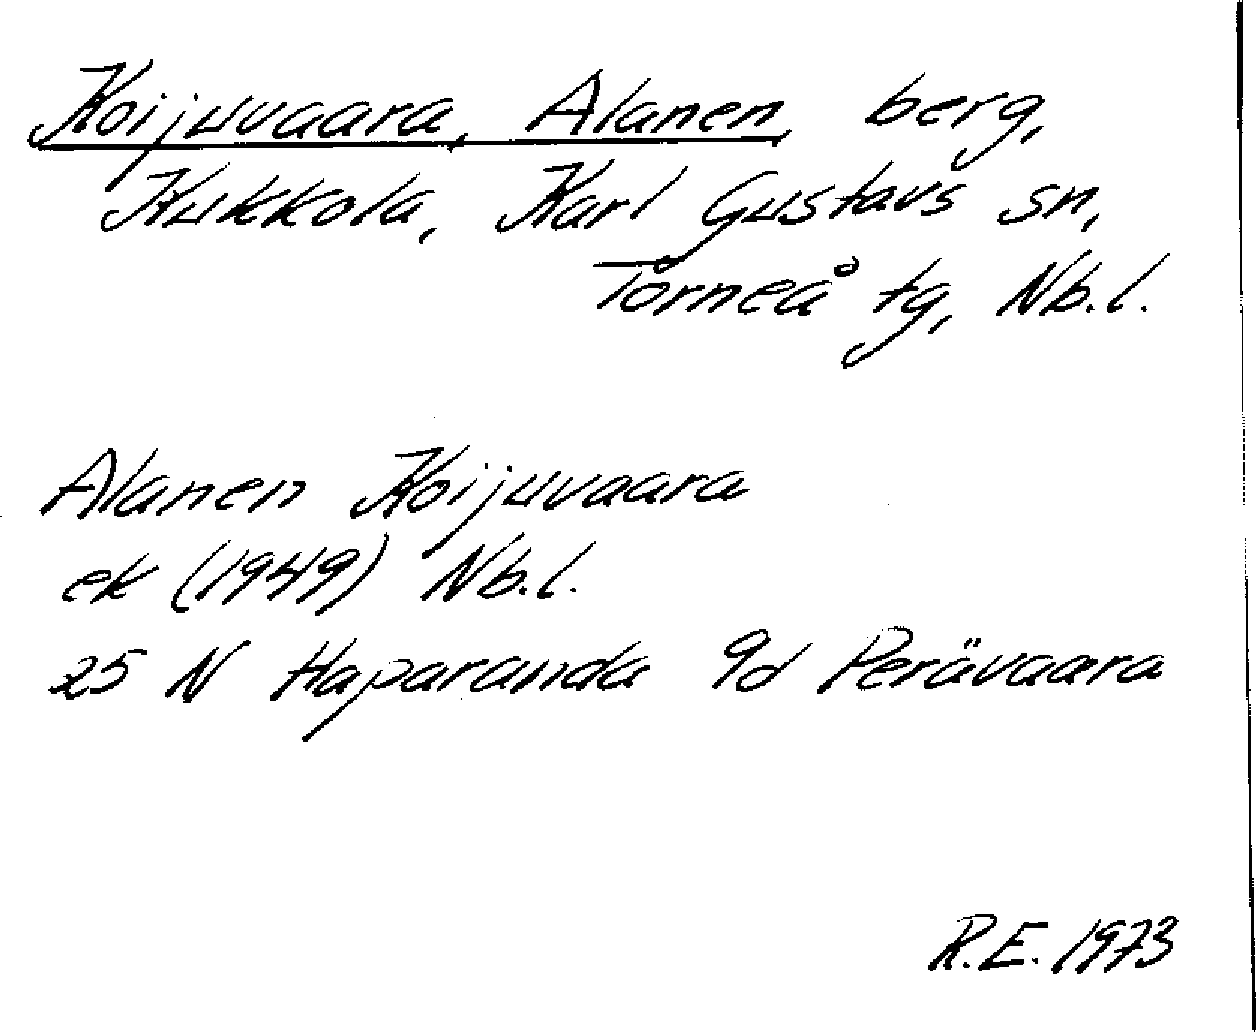 Koijuvaara, Alanen, berg,
Kukkola, Karl Gustavs sn,
Torneå tg, Nb.l.
Alanen Koijuvaara
ek (1949) Nb.l.
25 N Haparanda 9d Perävaara
R.E. 1973